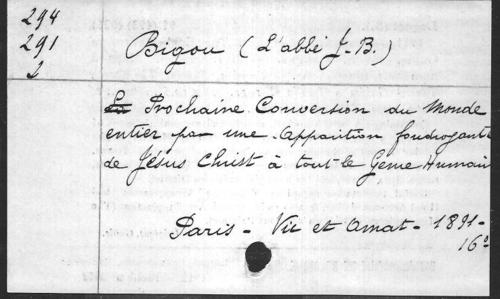 294
291
2
Bigou (L'abbé J. B.)
La Prochaine Conversion du Monde
entier par une Apparition foudroyante
de Jésus Christ à tout le Genre Humain
Paris - Vic et Amat - 1891 -
16°